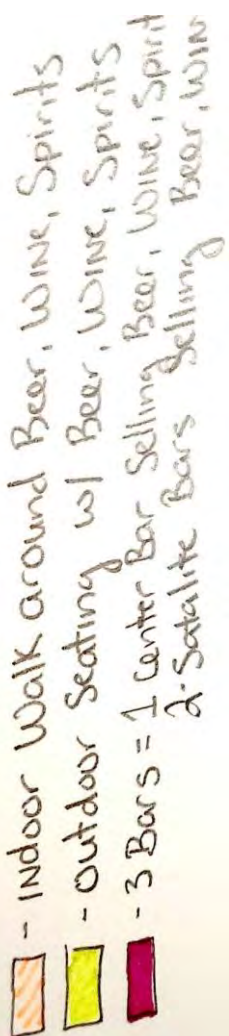 - Indoor Walk around Beer, Wine, Spirits
- Outdoor Seating w/ Beer, Wine, Spirits
- 3 Bars = 1 Center Bar Selling Beer, Wine, Spirit
2 Satalite Bars Selling Beer, Win